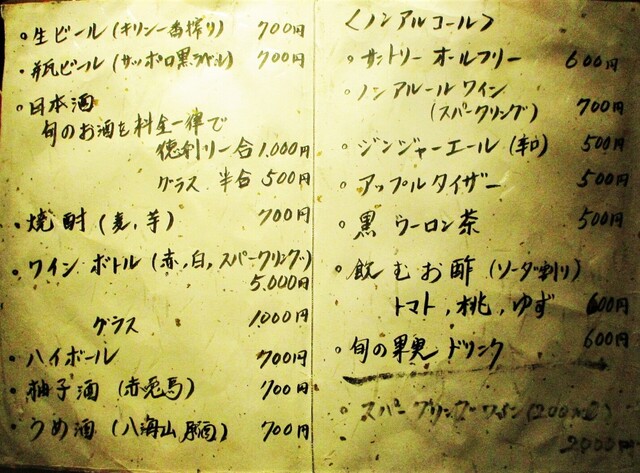 ・生ビール(キリン一番搾り) 700円
・瓶ビール(サッポロ黒ラベル) 700円
・日本酒
旬のお酒を料金一律で
徳利一合 1,000円
グラス 半合 500円
・焼酎(麦,芋) 700円
・ワイン ボトル(赤,白,スパークリング)
5,000円
グラス 1,000円
・ハイボール 700円
・柚子酒(赤兎馬) 700円
・うめ酒(八海山原酒) 700円
〈ノンアルコール〉
・サントリー オールフリー 600円
・ノンアルールワイン
(スパークリング) 700円
・ジンジャーエール(辛口) 500円
・アップルタイザー 500円
・黒ウーロン茶 500円
・飲むお酢(ソーダ割り)
トマト,桃,ゆず 600円
・旬の果実ドリンク 600円
・スパークリングワイン(200ml)
2,000円